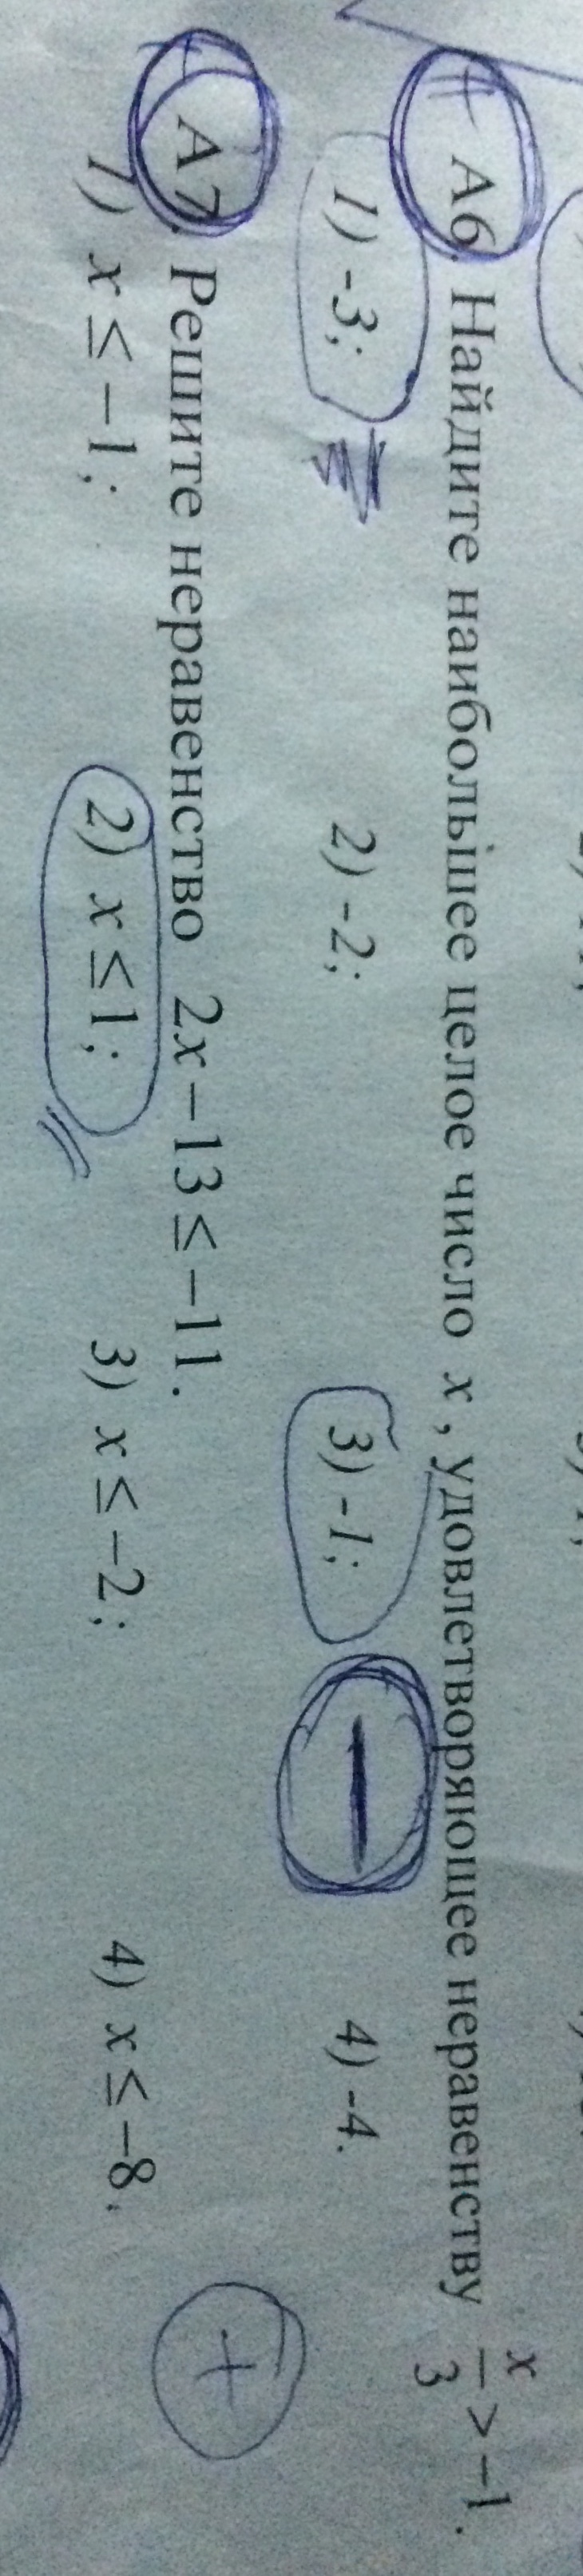 А6. Найдите наибольшее целое число x, удовлетворяющее неравенству x/3 > −1.
1) -3; 2) -2; 3) -1; 4) -4.
А7. Решите неравенство 2x−13 ≤ −11.
1) x ≤ −1; 2) x ≤ 1; 3) x ≤ −2; 4) x ≤ −8.